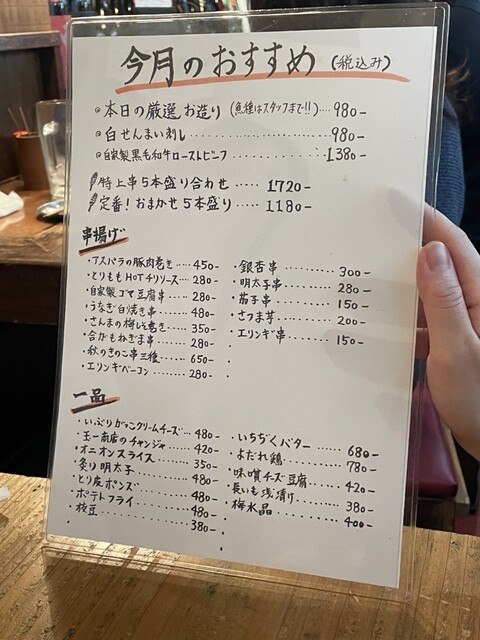 今月のおすすめ (税込み)
◎本日の厳選お造り (魚種はスタッフまで!!)....980-
◎白せんまい刺し..........980-
◎自家製黒毛和牛ローストビーフ..........1380-
特上串5本盛り合わせ.....1720-
定番!おまかせ5本盛り.....1180-
串揚げ
・アスパラの豚肉巻き...450-
・とりももHOTチリソース...280-
・自家製ゴマ豆腐串...280-
・うなぎ白焼き串...480-
・さんまの梅しそ巻き...350-
・合がもねぎま串...280-
・秋のきのこ串三種...650-
・エリンギベーコン...280-
・銀杏串..........300-
・明太子串..........280-
・茄子串..........150-
・さつま芋..........200-
・エリンギ串..........150-
一品
・いぶりがっこクリームチーズ...480-
・王一商店のチャンジャ...420-
・オニオンスライス...350-
・炙り明太子...480-
・とり皮ポンズ...480-
・ポテトフライ...480-
・枝豆..........380-
・いちぢくバター..........680-
・よだれ鶏..........780-
・味噌チーズ豆腐....420-
・長いも浅漬け....380-
・梅水晶..........400-